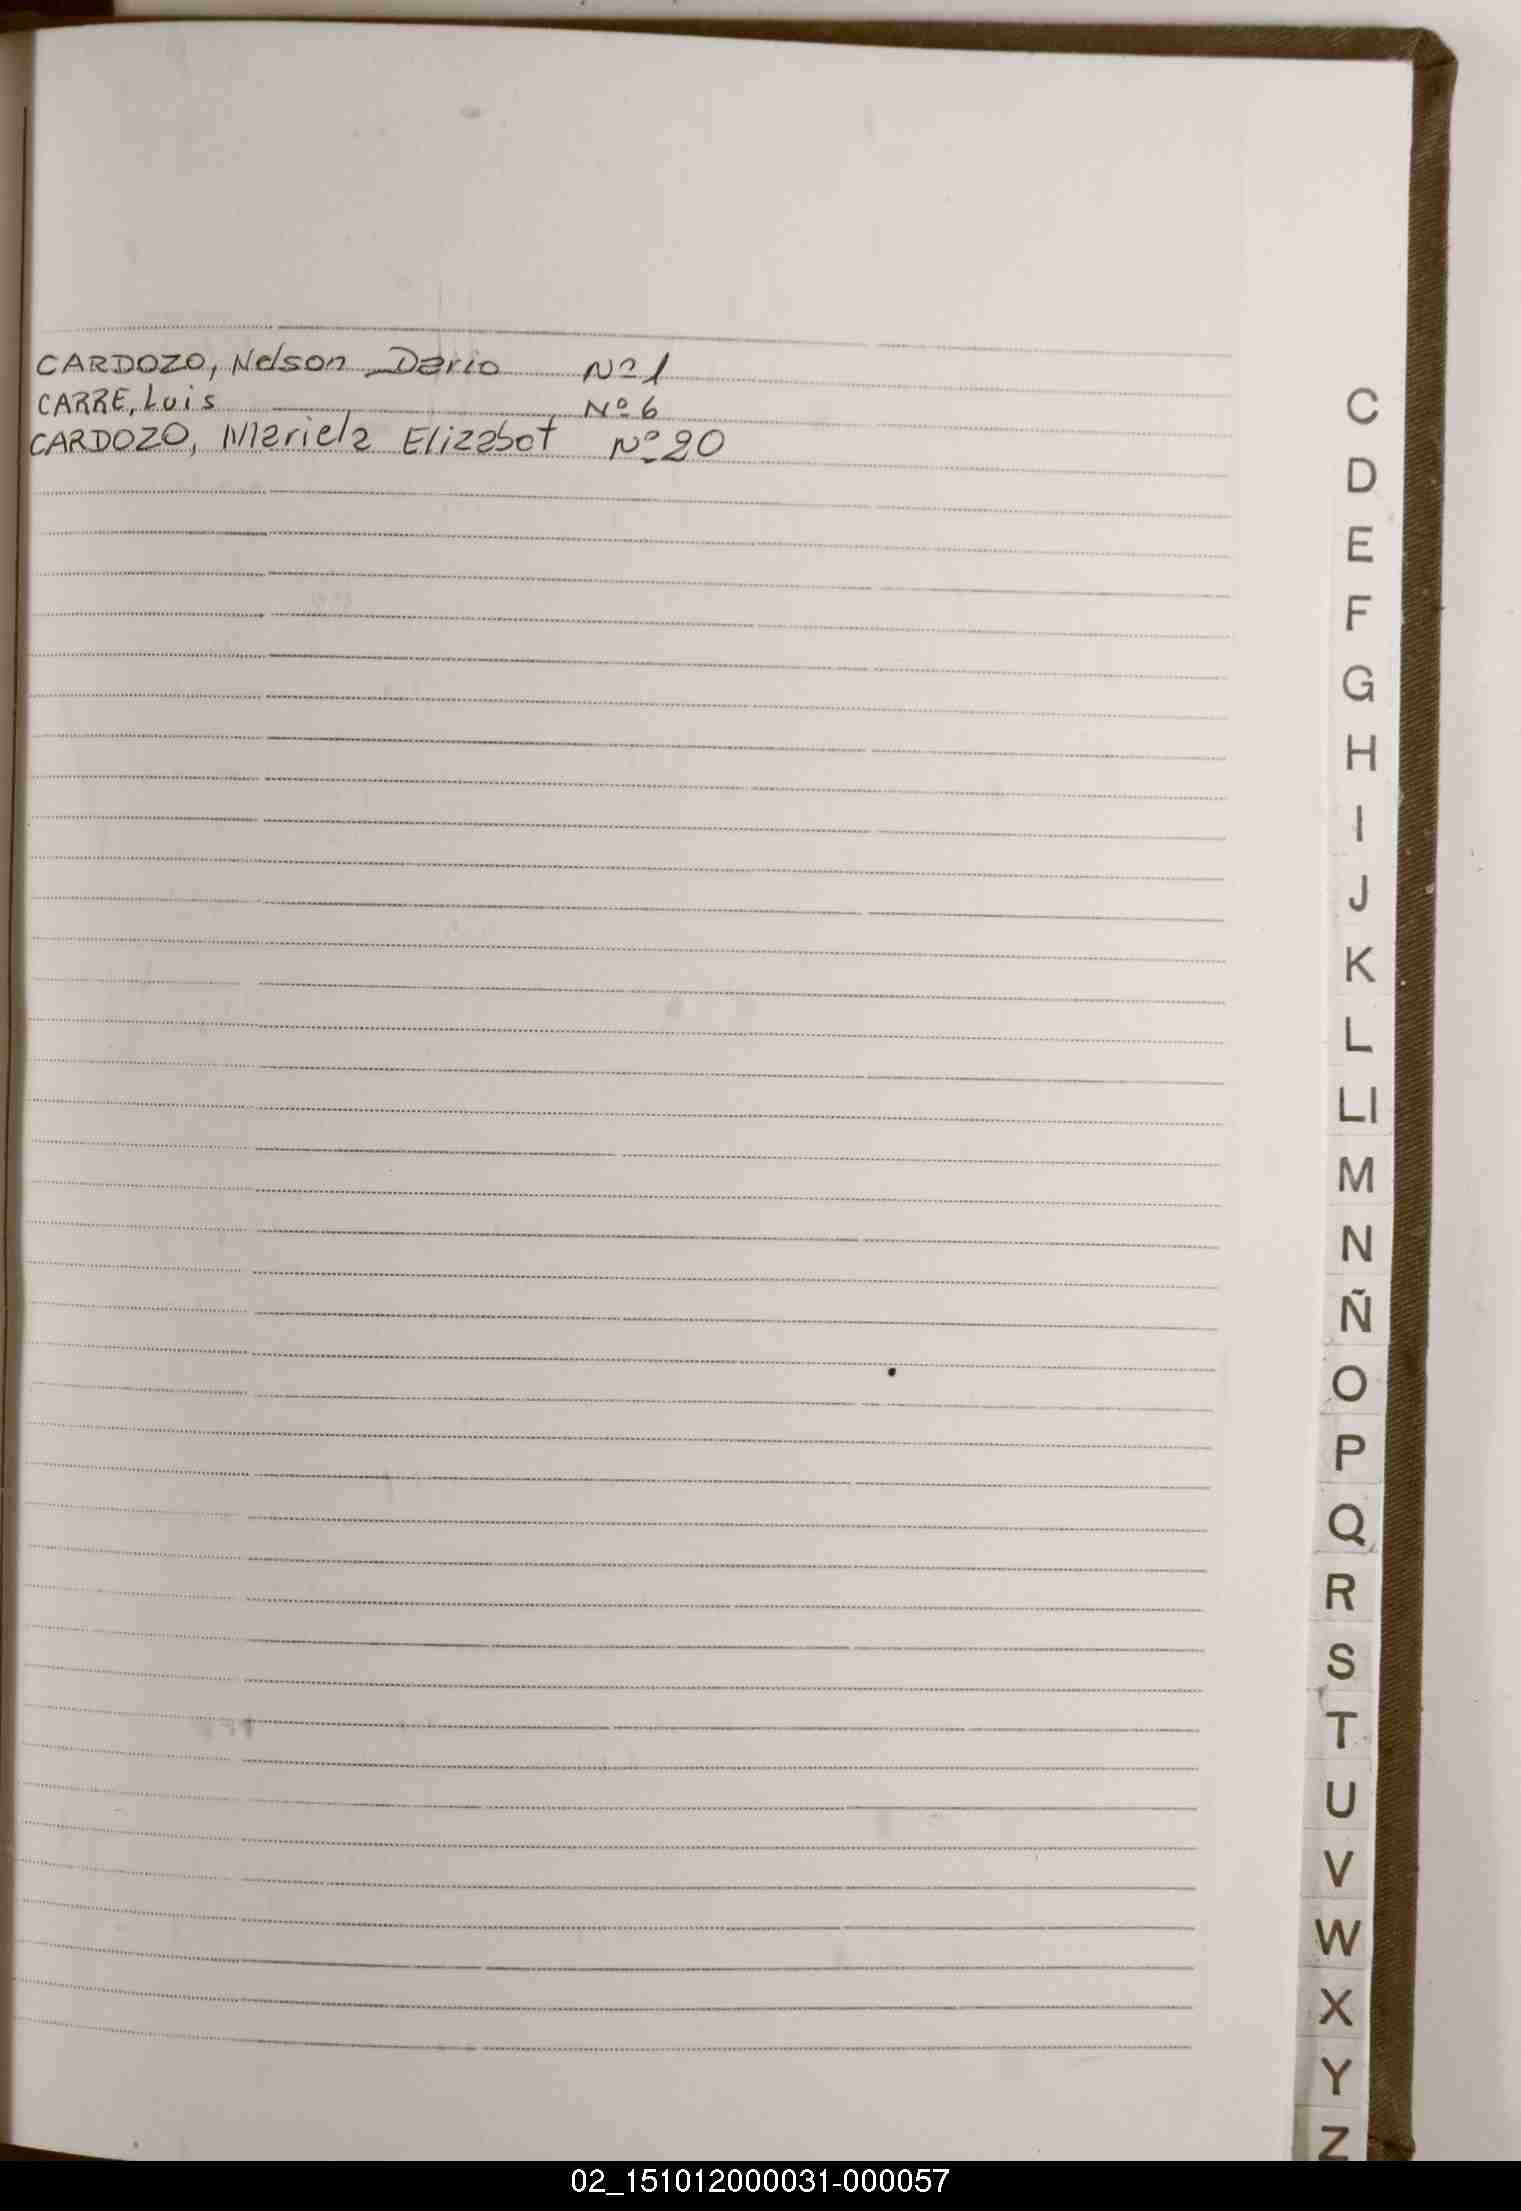 CARDOZO, Nelson Dario Nº 1
CARRE, Luis Nº 6
CARDOZO, Mariela Elizabot Nº 20
C
D
E
F
G
H
I
J
K
L
Ll
M
N
Ñ
O
P
Q
R
S
T
U
V
W
X
Y
Z
02_151012000031-000057